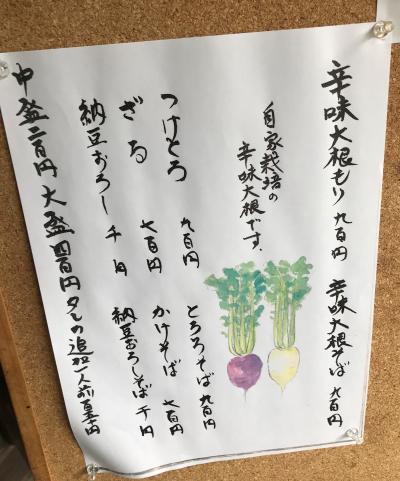 辛味大根もり 九百円
辛味大根そば 九百円
自家栽培の
辛味大根です。
つけとろ 九百円
とろろそば 九百円
ざる 七百円
かけそば 七百円
納豆おろし 千円
納豆おろしそば 千円
中盛二百円 大盛四百円 タレの追加一人前百五十円